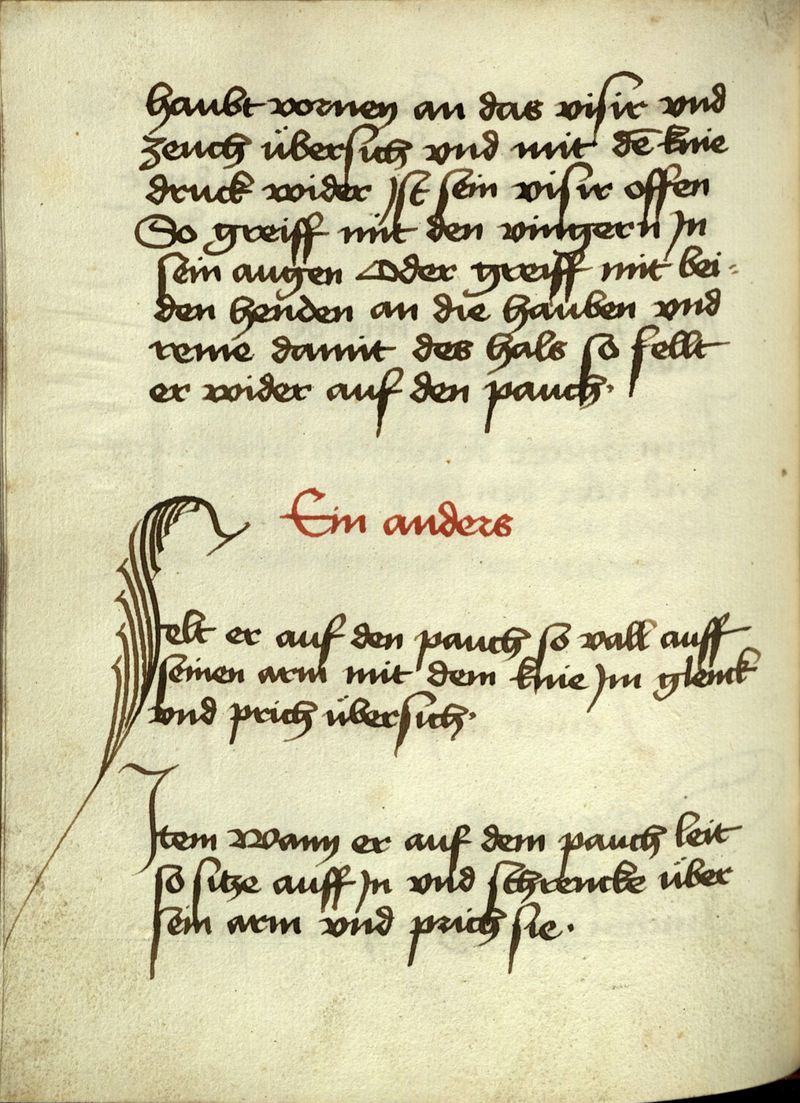 haubt vornen an das visir vnd
zeuch übersich vnd mit dē knie
druck wider Ist sein visir offen
So greiff mit den vingern In
sein augen Oder greiff mit bei-
den henden an die hauben vnd
damit des hals so fellt
er wider auf den pauch.
Ein anders
Felt er auf den pauch so vall auff
seinen arm mit dem knie Im glenck
vnd prich übersich.
Item Wann er auf dem pauch leit
so sitze auff In vnd schrencke über
sein arm vnd prich sie.